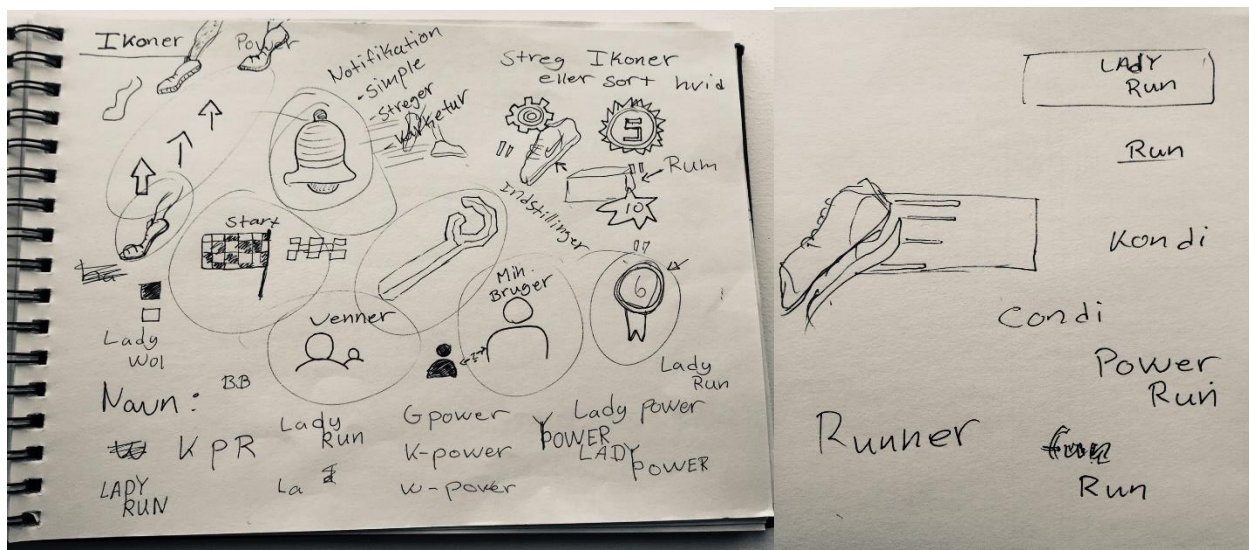 Ikoner
Power
Notifikation
- Simple
- Streger
Streg Ikoner
eller sort hvid
5
Rum
10
Indstillinger
Start
Min.
Bruger
6
Venner
Lady
Wol
BB
Lady
Run
Navn:
KPR
Lady
Run
Gpower
Lady power
K-power
POWER
LADY
POWER
LADY
RUN
La
W-power
LADY
Run
Run
Kondi
Condi
Power
Run
Runner
Run